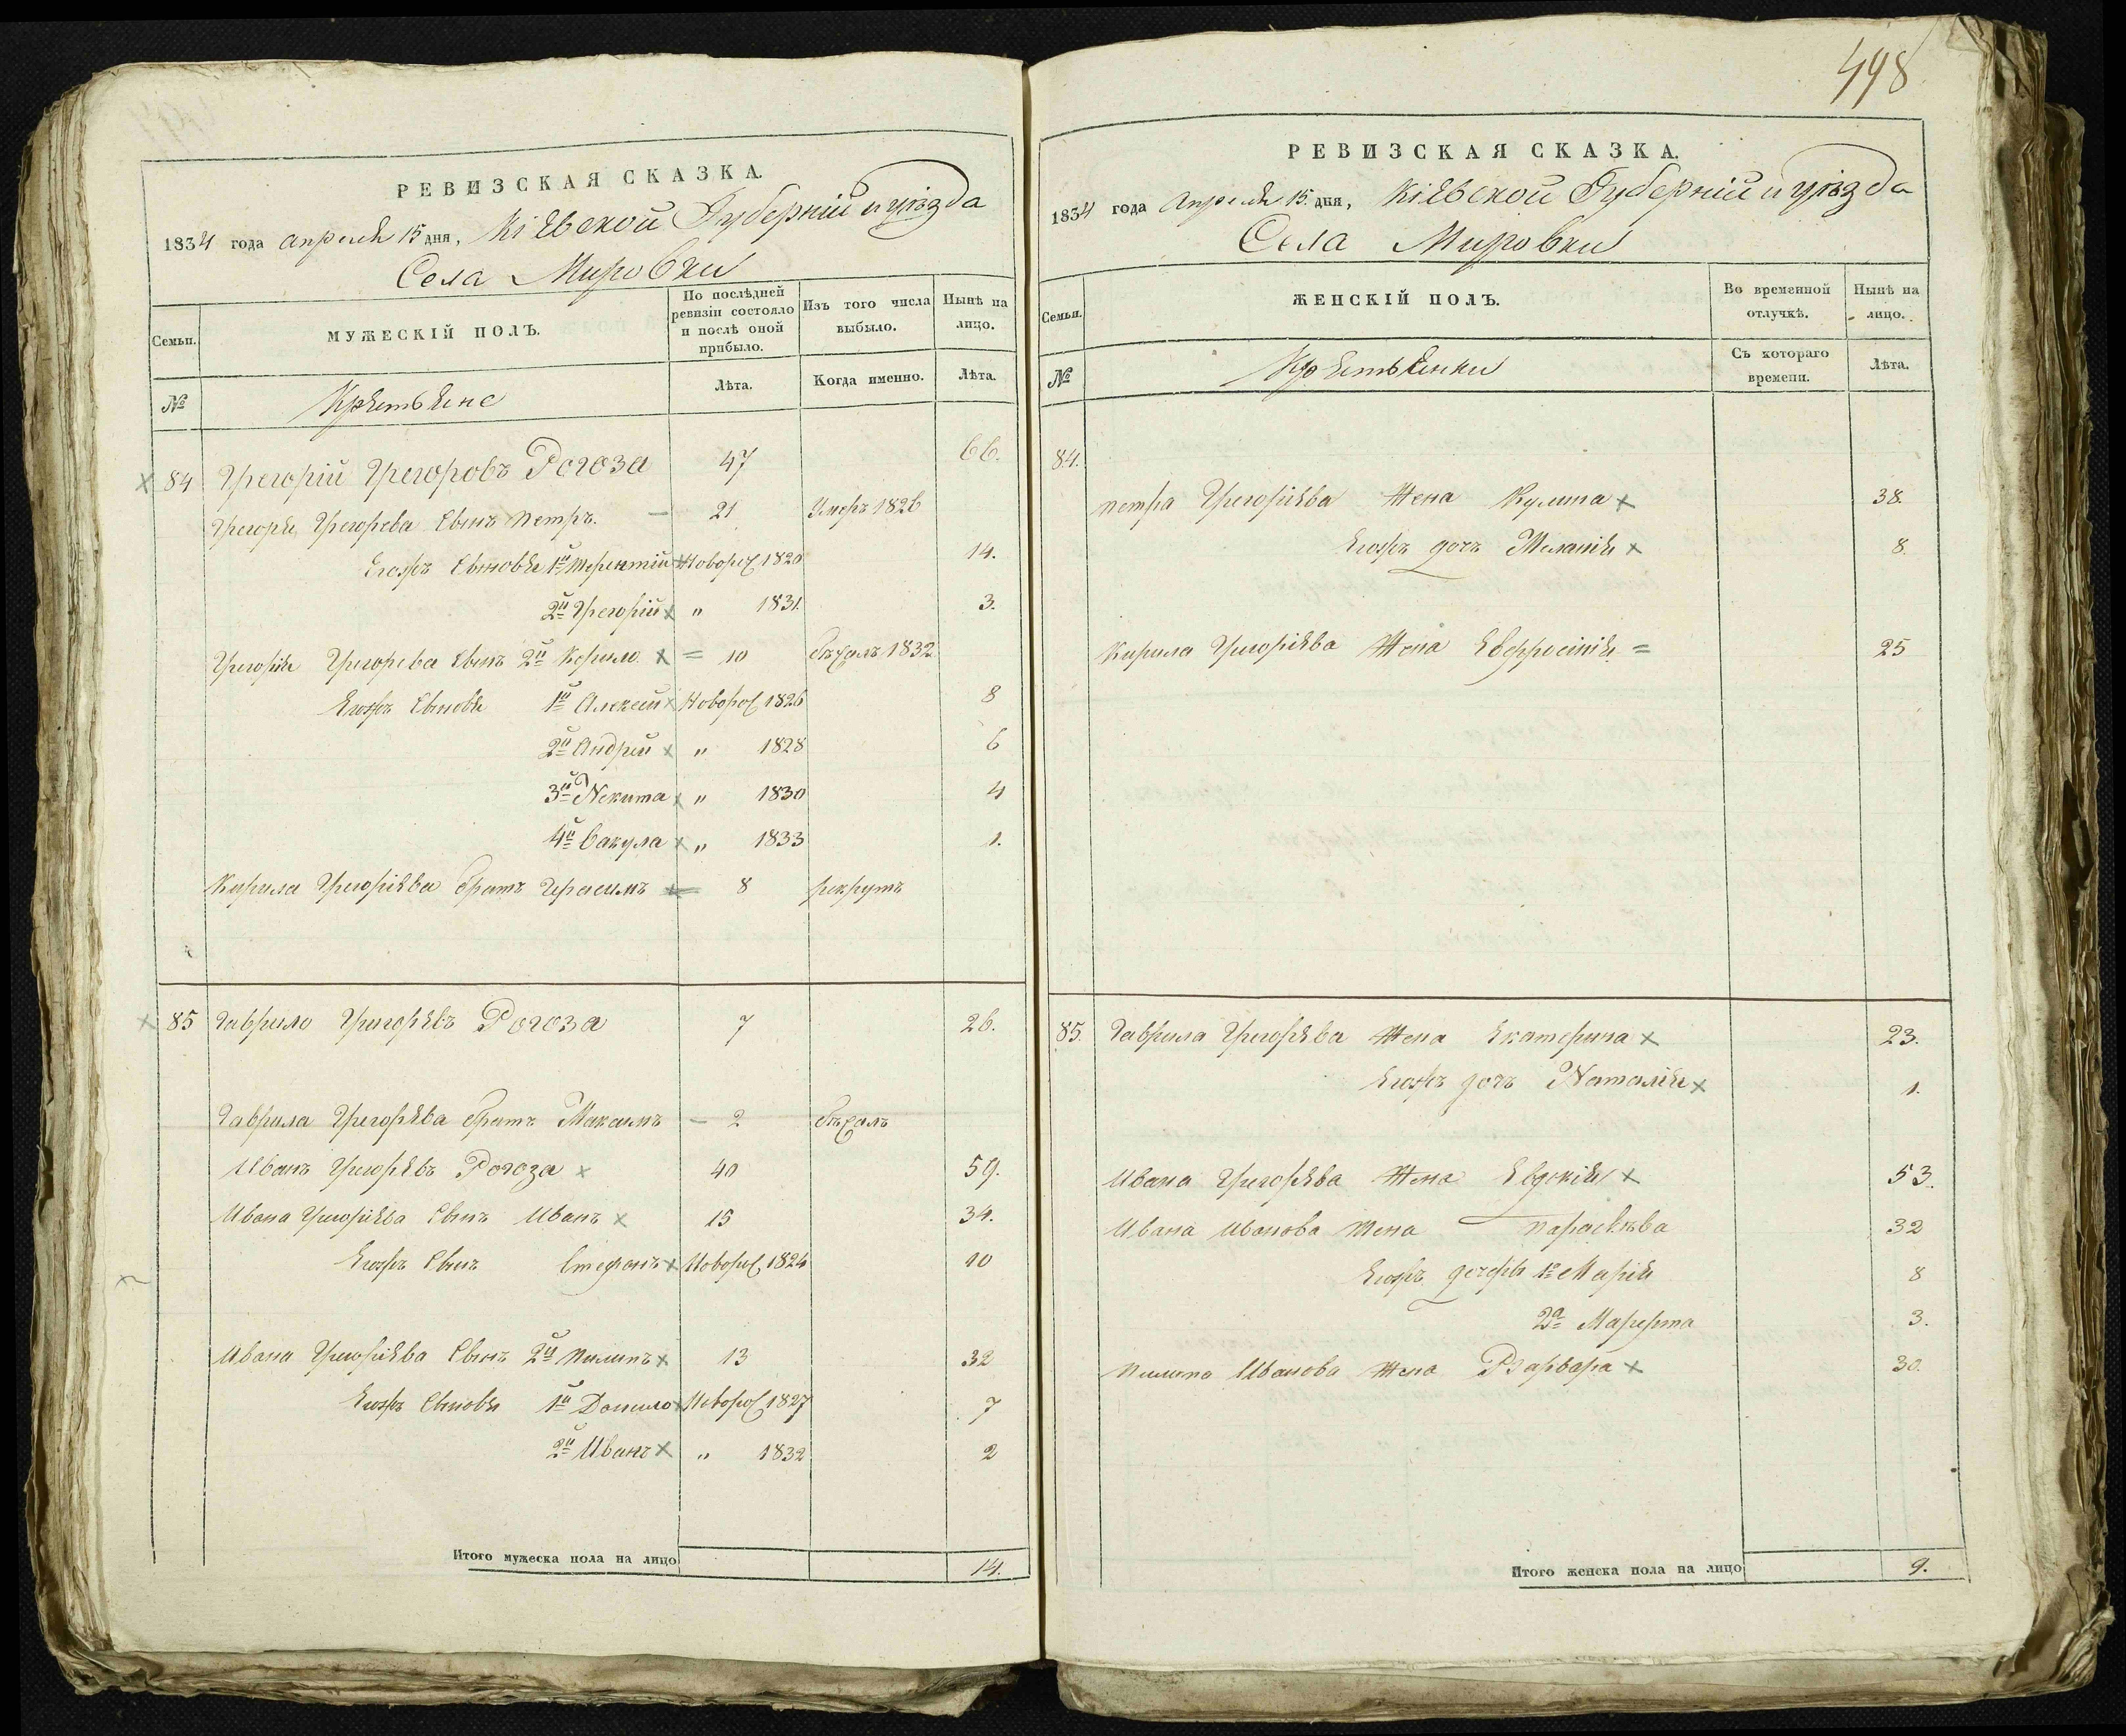 498
РЕВИЗСКАЯ СКАЗКА.
1834 года апреля 15 дня, Кіевской Губерніи и уѣзда
Села Мировки
Семьи.
МУЖЕСКІЙ ПОЛЪ.
По послѣдней ревизіи состояло и послѣ оной прибыло.
Изъ того числа выбыло.
Нынѣ на лицо.
№
Крестьяне
Лѣта.
Когда именно.
Лѣта.
84 Грегорій Грегоровъ Рогоза 47 66.
Грегорія Грегорева Сынъ петръ. 21 Умеръ 1826
Егожъ Сыновья 1й терентій Новорож 1820 14.
2й Грегорій " 1831. 3.
Грегорія Грегорева Сынъ 2й Керило 10 бежалъ 1832
Егожъ Сыновья 1й Алексей Новорож 1826 8
2й Андрей " 1828 6
3й Некита " 1830 4
4й вакула " 1833 1.
Кирила Грегоріева братъ Герасимъ 8 рекрутъ
85 Гаврило Грегорьевъ Рогоза 7 26.
Гаврила Грегорьева братъ Максимъ 2 бежалъ
Иванъ Грегорьевъ Рогоза 40 59.
Ивана Грегоріева Сынъ Иванъ 15 34.
Егожъ Сынъ Стефанъ Новорож 1824 10
Ивана Грегоріева Сынъ 2й пилипъ 13 32
Егожъ Сыновья 1й Данило Новорож 1827 7
2й Иванъ " 1832 2
Итого мужеска пола на лицо 14.
РЕВИЗСКАЯ СКАЗКА.
1834 года Апреля 15. дня, Кіевской Губерніи и уѣзда
Села Мировки
Семьи.
ЖЕНСКІЙ ПОЛЪ.
Во временной отлучкѣ.
Нынѣ на лицо.
№
Крестьянки
Съ котораго времени.
Лѣта.
84.
петра Грегоріева Жена Кулина 38.
Егожъ дочь Меланія 8.
Кирила Грегоріева Жена Евфросінія 25
85. Гаврила Грегорьева Жена Екатерина 23.
Егожъ дочь Наталія 1.
Ивана Грегорьева Жена Евдокія 53.
Ивана Иванова Жена параскева 32
Егожъ дочери 1я Марія 8
2я 3.
пилипа Иванова Жена Варвара 30.
Итого женска пола на лицо 9.